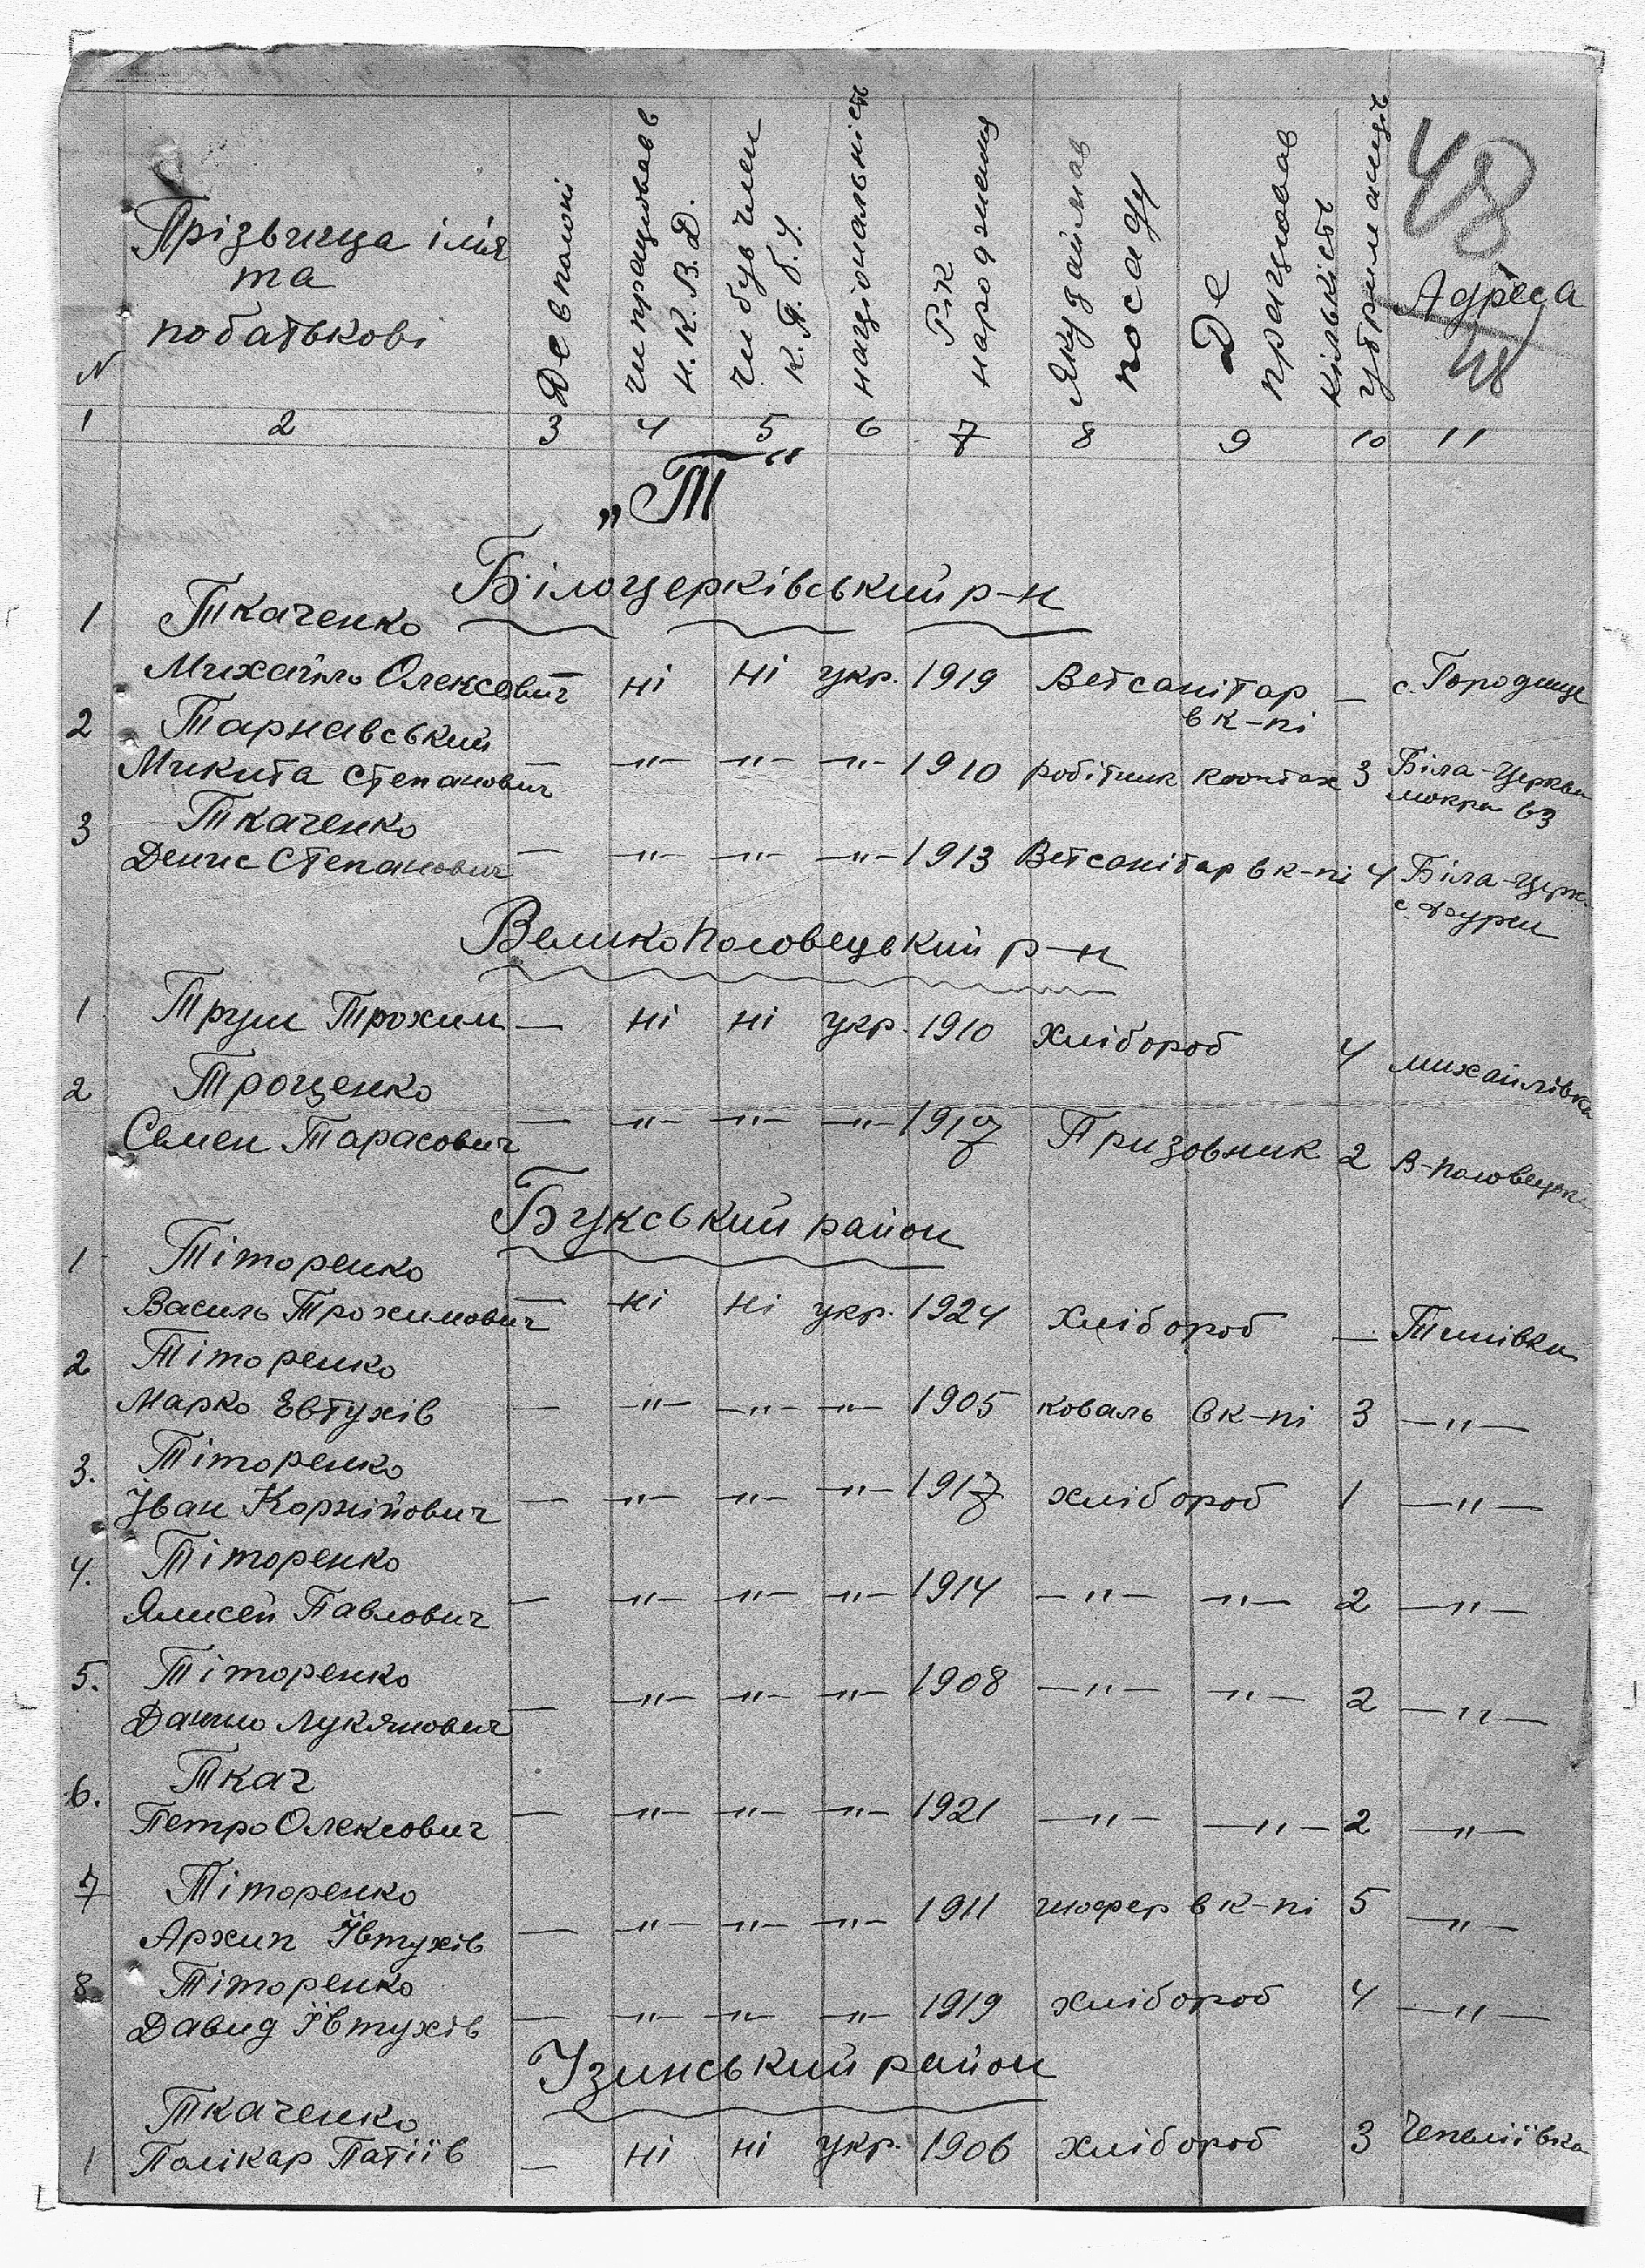 48
N Прізвища імя
та
побатькові
Де в полоні
чи працював в
Н.К.В.Д.
чи був член
К.П.б.У.
національність
Рік
народження
Яку займав
посаду
Де
працював
кількість
утриманців
Адреса
48
1 2 3 4 5 6 7 8 9 10 11
„Т“
Білоцерківський р-н
1 Ткаченко
Михайло Олексович — Ні Ні укр. 1919 Ветсанітар — с. Городище
в к-пі
2 Тарнавський
Микита Степанович — -"- -"- -"- 1910 робітник 3 Біла-Церква
мокра 63
3 Ткаченко
Денис Степанович — -"- -"- -"- 1913 Ветсанітар в к-пі 4 Біла-Церк.
Великополовецький р-н
1 Труш Трохим — Ні Ні укр. 1910 хлібороб 4 Михайлівка
2 Троценко
Семен Тарасович — -"- -"- -"- 1917 Призовник 2 В-Половецьк
Букський район
1 Тіторенко
Василь Трохимович — Ні Ні укр. 1924 Хлібороб —
2 Тіторенко
Марко Евтухів — -"- -"- -"- 1905 коваль в к-пі 3 -"-
3. Тіторенко
Іван Корнійович — -"- -"- -"- 1917 хлібороб 1 -"-
4. Тіторенко
Павлович — -"- -"- -"- 1914 -"- -"- 2 -"-
5. Тіторенко
Данило Лукянович — -"- -"- -"- 1908 -"- -"- 2 -"-
6. Ткач
Петро Олексович — -"- -"- -"- 1921 -"- -"- 2 -"-
7 Тіторенко
Архип Ївтухів — -"- -"- -"- 1911 шофер в к-пі 5 -"-
8 Тіторенко
Давид Ївтухів — -"- -"- -"- 1919 хлібороб 4 -"-
Узинський район
Ткаченко
1 Полікар Патіїв — Ні Ні укр. 1906 хлібороб 3 Чепеліївка